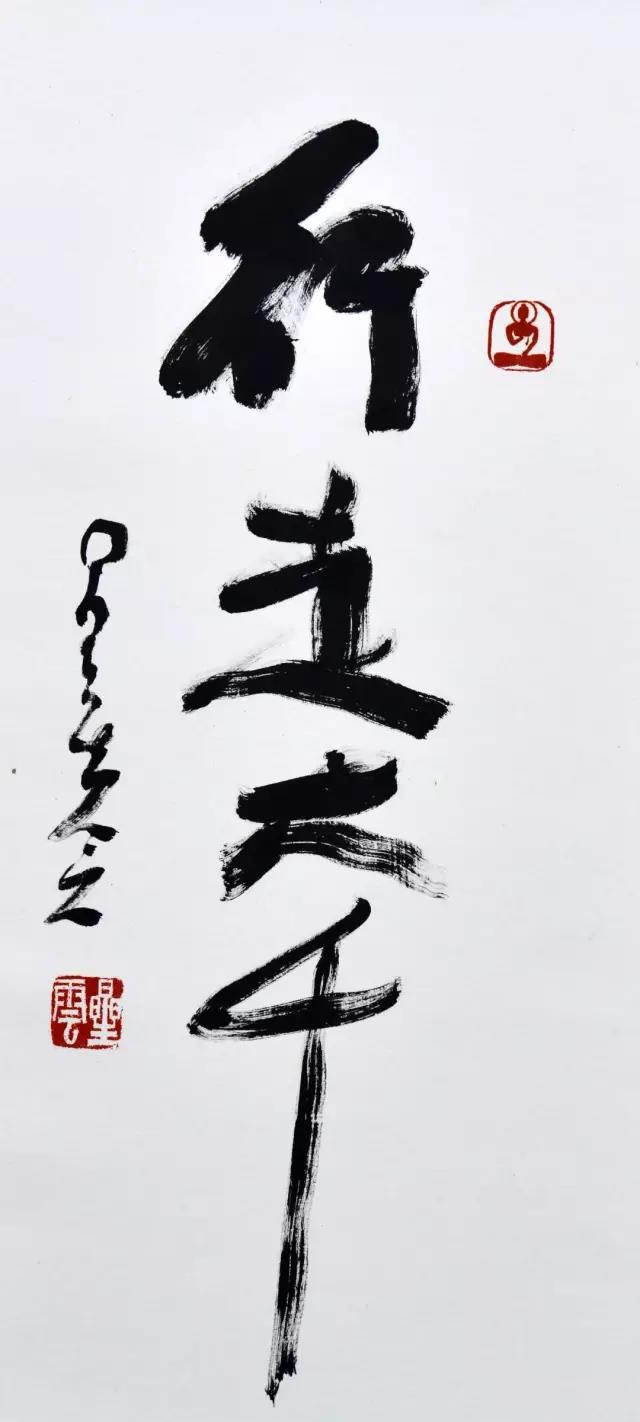 行走大千
星雲
星雲